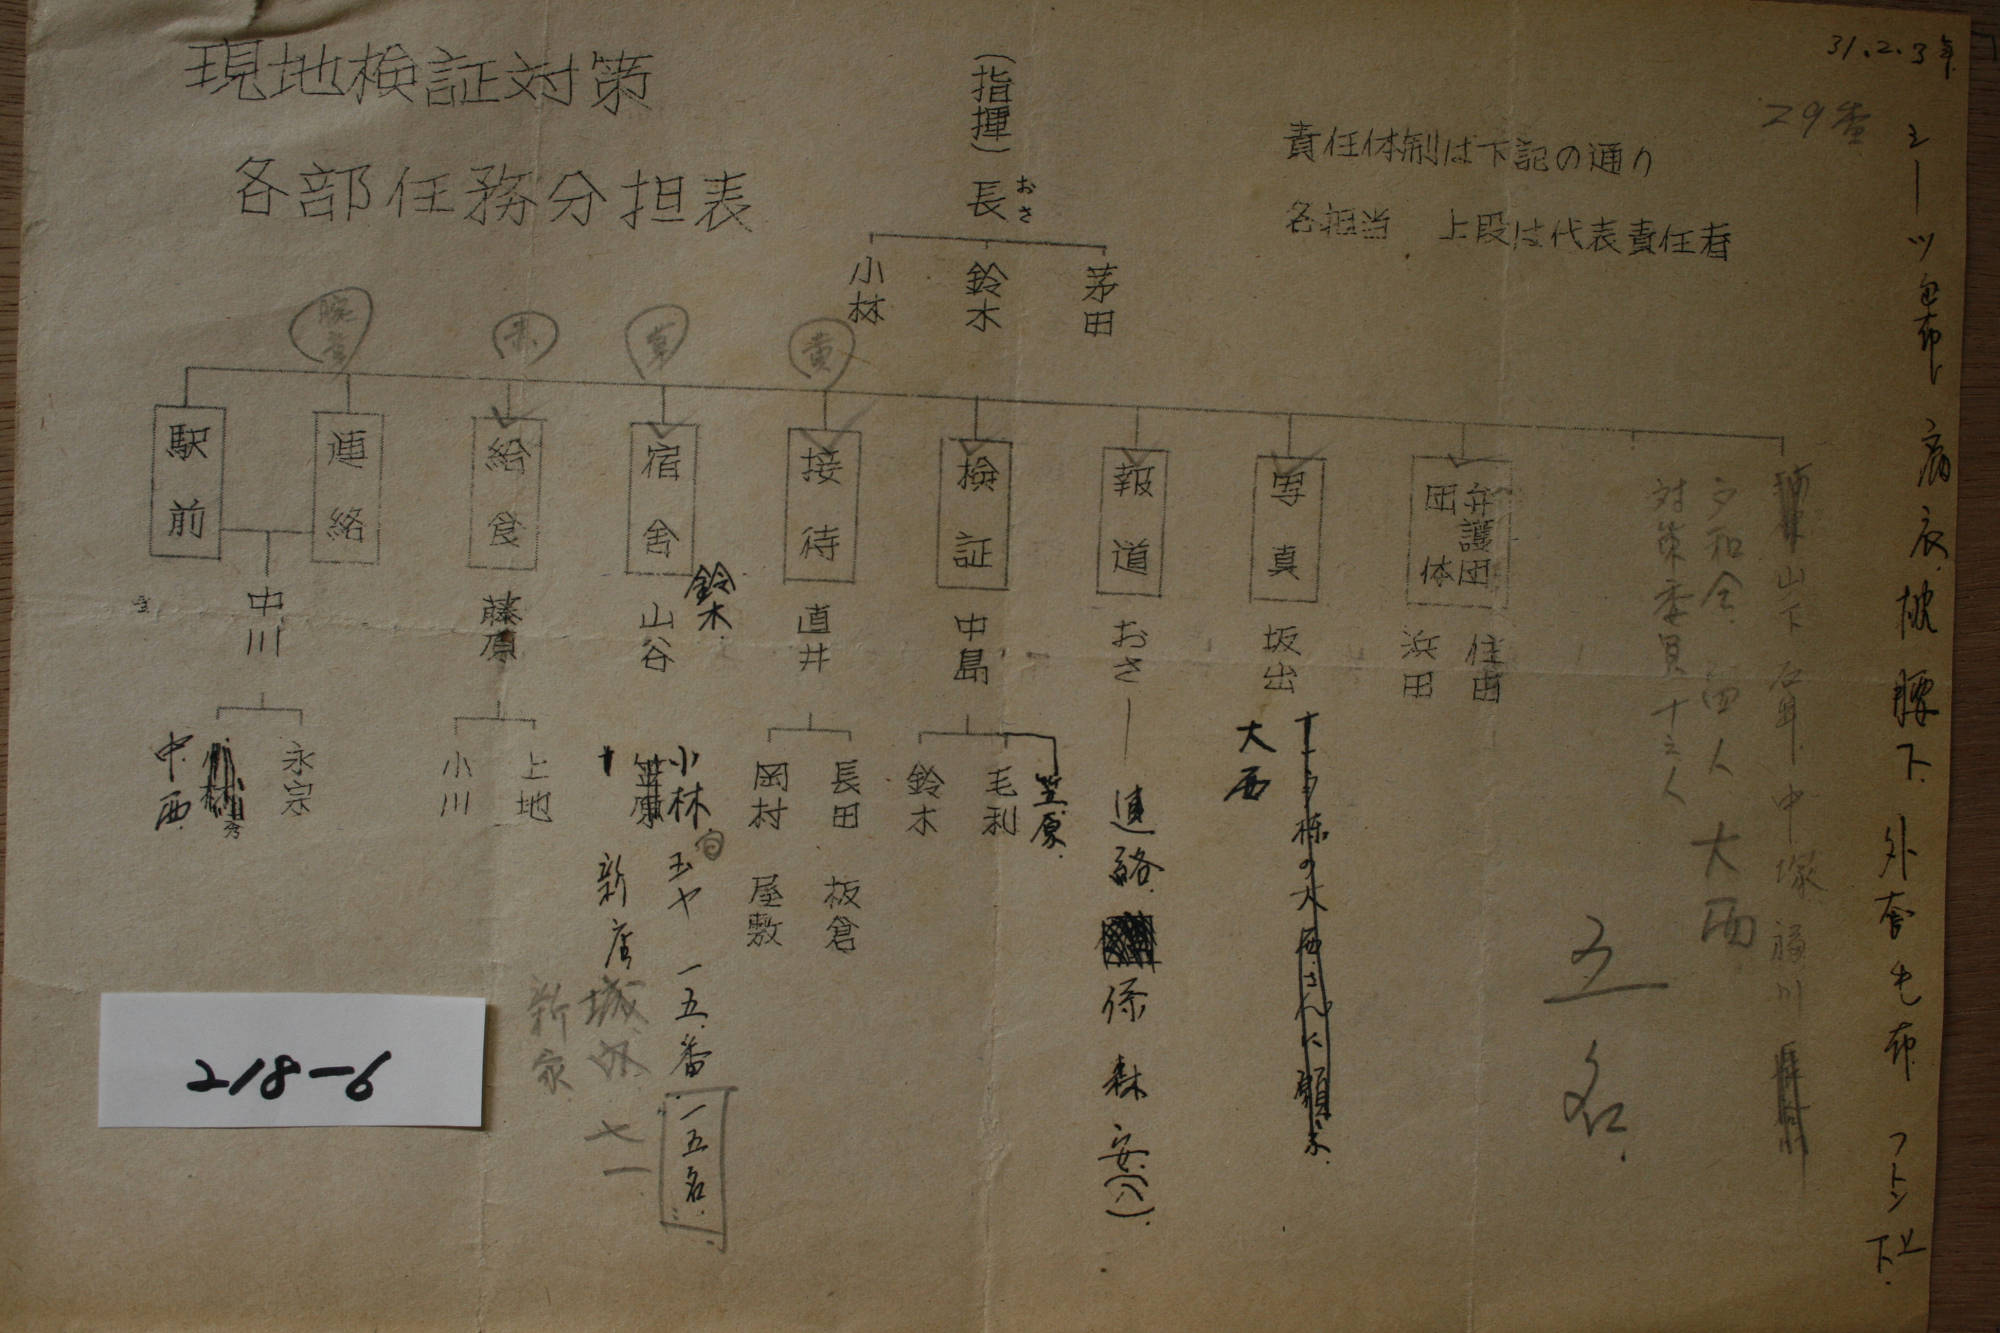 現地検証対策
各部任務分担表
(指揮)長
おさ
小林
鈴木
茅田
責任体制は下記の通り
各担当 上段は代表責任者
31.2.3
29
黄
駅前
連絡
中川
中西
永宗
給食
藤原
小川
上地
宿舎
山谷
鈴木
小林
玉ヤ 一五番
一五名
新店
新家
七一
接待
直井
岡村
長田
屋敷
板倉
検証
中島
鈴木
毛利
笠原
報道
おさ
連絡
係 森安(八)
写真
坂出
大西
弁護団
団体
浜田
対策委員十三人
夕和会 四人 大西
山下 中塚
五名
シーツ 病衣 枕 腰下 外套 毛布 フトン 上下
218-6